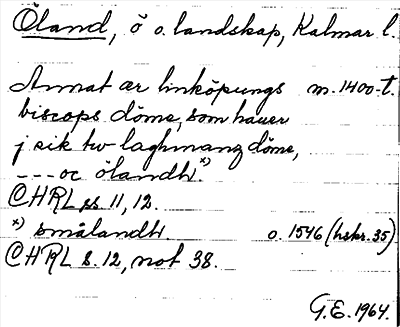 Öland, ö o. landskap, Kalmar l.
Annat ær linköpungs m. 1400-t.
biscops döme, som hauer
j sik tw laghmanz döme,
---oc ölandh.x)
CHRL ss 11, 12.
x) smålandh. o. 1546 (hskr. 35)
CHRL s. 12, not 38.
G.E. 1964.